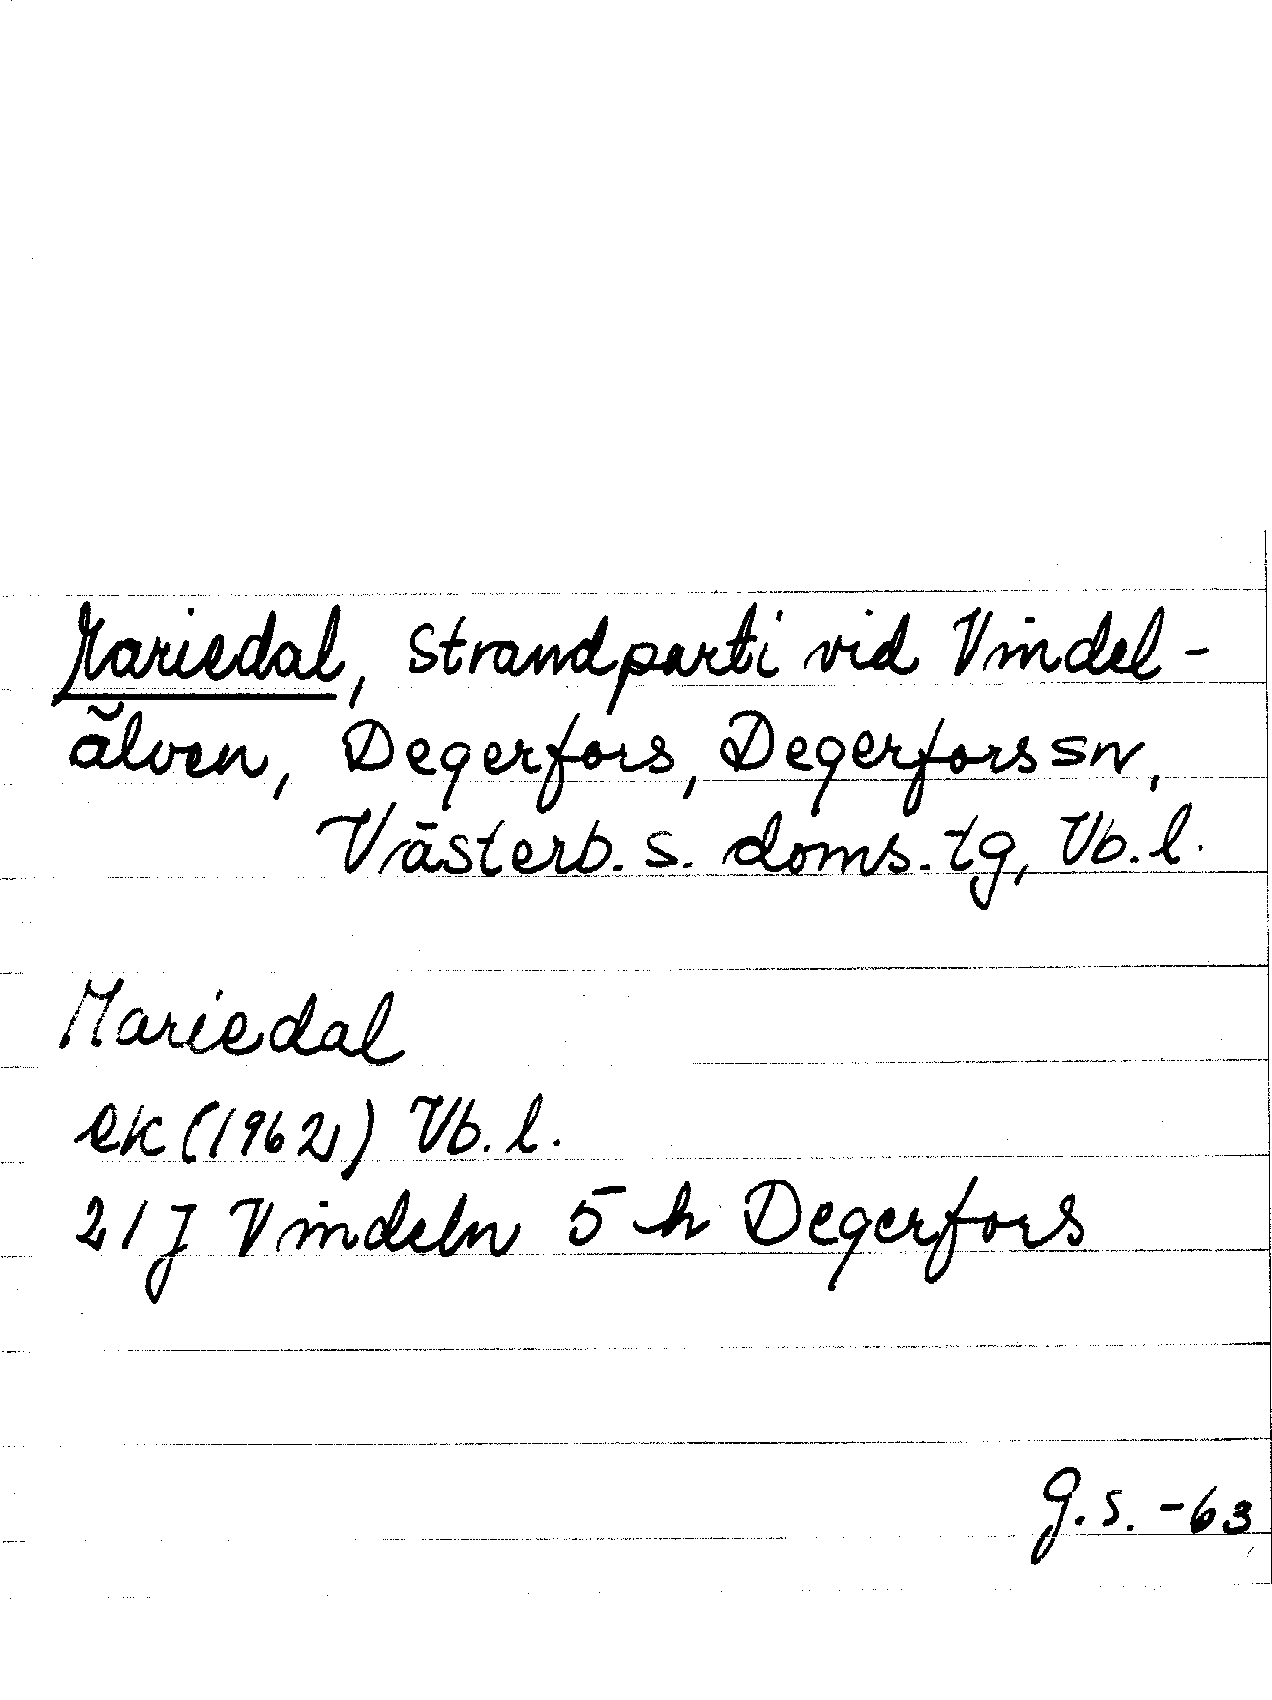 Mariedal, Strandparti vid Vindel-
älven, Degerfors, Degerfors sn,
Västerb. s. doms. tg, Vb. l.
Mariedal
ek (1962) Vb. l.
21 J Vindeln 5 h Degerfors
G.S. -63